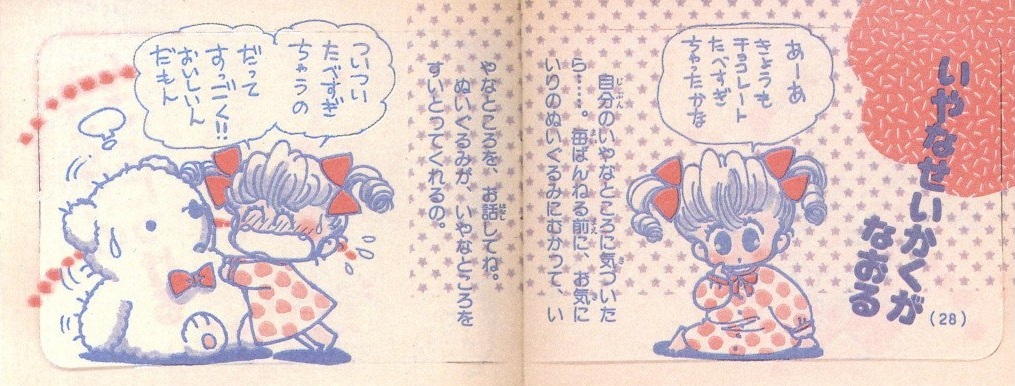 いやなせいかくが
なおる
(28)
あーあ
きょうも
チョコレート
たべすぎ
ちゃったかな
自分のいやなところに気づいた
ら……。毎ばんねる前に、お気に
いりのぬいぐるみにむかって、い
やなところを、お話してね。
ぬいぐるみが、いやなところを
すいとってくれるの。
ついつい
たべすぎ
ちゃうの
だって
すっごく!!
おいしいん
だもん